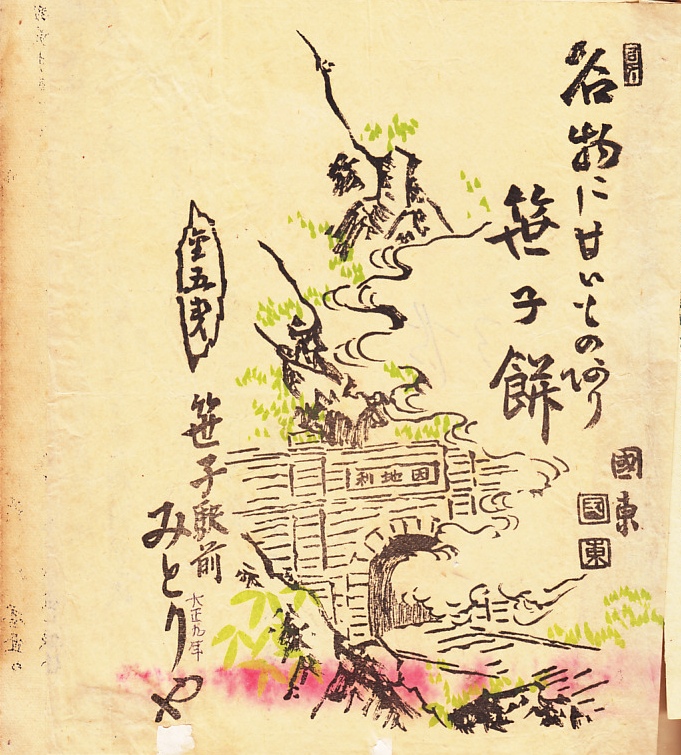 名物に甘いものあり
笹子餅
國東
國東
因地利
金五銭
笹子駅前
みどりや
大正九年